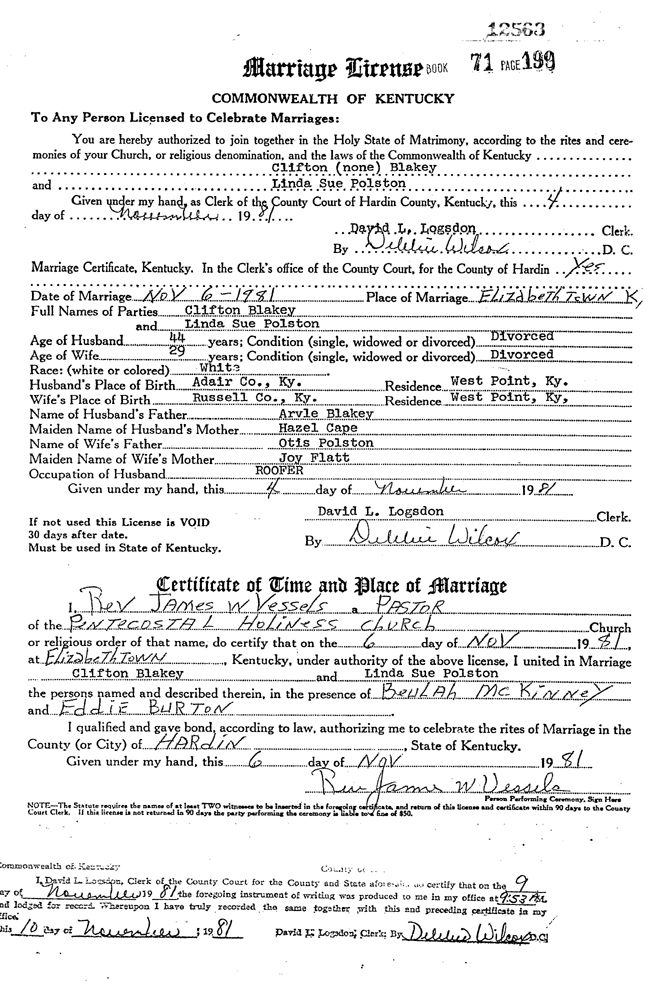 12563
Marriage License BOOK 71 PAGE 199
COMMONWEALTH OF KENTUCKY
To Any Person Licensed to Celebrate Marriages:
You are hereby authorized to join together in the Holy State of Matrimony, according to the rites and cere-
monies of your Church, or religious denomination, and the laws of the Commonwealth of Kentucky
Clifton (none) Blakey
and Linda Sue Polston
Given under my hand, as Clerk of the County Court of Hardin County, Kentucky, this 4
day of November 1981
David L. Logsdon Clerk.
By Debbie Wilcox D. C.
Marriage Certificate, Kentucky. In the Clerk's office of the County Court, for the County of Hardin Yes
Date of Marriage NOV 6-1981 Place of Marriage ELIZABETHTOWN K,
Full Names of Parties Clifton Blakey
and Linda Sue Polston
Age of Husband 44 years; Condition (single, widowed or divorced) Divorced
Age of Wife 29 years; Condition (single, widowed or divorced) Divorced
Race: (white or colored) White
Husband's Place of Birth Adair Co., Ky. Residence West Point, Ky.
Wife's Place of Birth Russell Co., Ky. Residence West Point, Ky,
Name of Husband's Father Arvle Blakey
Maiden Name of Husband's Mother Hazel Cape
Name of Wife's Father Otis Polston
Maiden Name of Wife's Mother Joy Flatt
Occupation of Husband ROOFER
Given under my hand, this 4 day of November 1981
David L. Logsdon Clerk.
If not used this License is VOID
30 days after date.
Must be used in State of Kentucky.
By Debbie Wilcox D. C.
Certificate of Time and Place of Marriage
I, Rev JAMES W Vessels a PASTOR
of the PENTECOSTAL HOLINESS CHURCH Church
or religious order of that name, do certify that on the 6 day of NOV 1981,
at ELIZABETHTOWN, Kentucky, under authority of the above license, I united in Marriage
Clifton Blakey and Linda Sue Polston
the persons named and described therein, in the presence of BEULAH MCKINNEY
and EDDIE BURTON
I qualified and gave bond, according to law, authorizing me to celebrate the rites of Marriage in the
County (or City) of HARDIN, State of Kentucky.
Given under my hand, this 6 day of NOV 1981
Rev James W Vessels
Person Performing Ceremony, Sign Here
NOTE—The Statute requires the names of at least TWO witnesses to be inserted in the foregoing certificate, and return of this license and certificate within 90 days to the County
Court Clerk. If this license is not returned in 90 days the party performing the ceremony is liable to a fine of $50.
Commonwealth of Kentucky County of
I, David L. Logsdon, Clerk of the County Court for the County and State aforesaid do certify that on the 9
day of November 1981 the foregoing instrument of writing was produced to me in my office at 9:53 AM
and lodged for record. Whereupon I have truly recorded the same together with this and preceding certificate in my
office.
this 10 day of November, 1981 David L. Logsdon, Clerk: By Debbie Wilcox D.C.